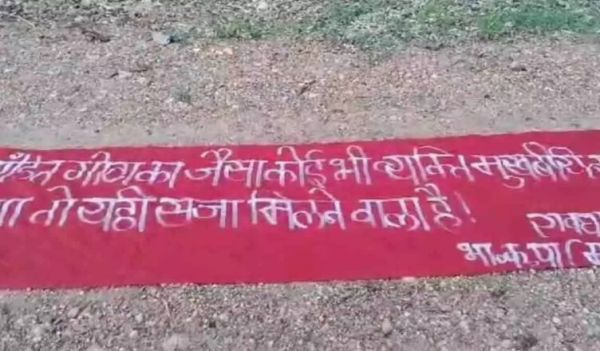 गोटा का जैसा कोई भी व्यक्ति मुखबीरी
तो यही सजा मिलने वाला है!
भा.क.पा (म